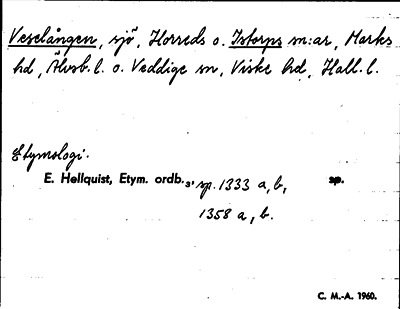 Veselången, sjö, Horreds o. Istorps sn:ar, Marks
hd, Älvsb. l. o. Veddige sn, Viske hd, Hall. l.
Etymologi.
E. Hellquist, Etym. ordb.3, sp. 1333 a, b, sp.
1358 a, b.
C. M.-A. 1960.